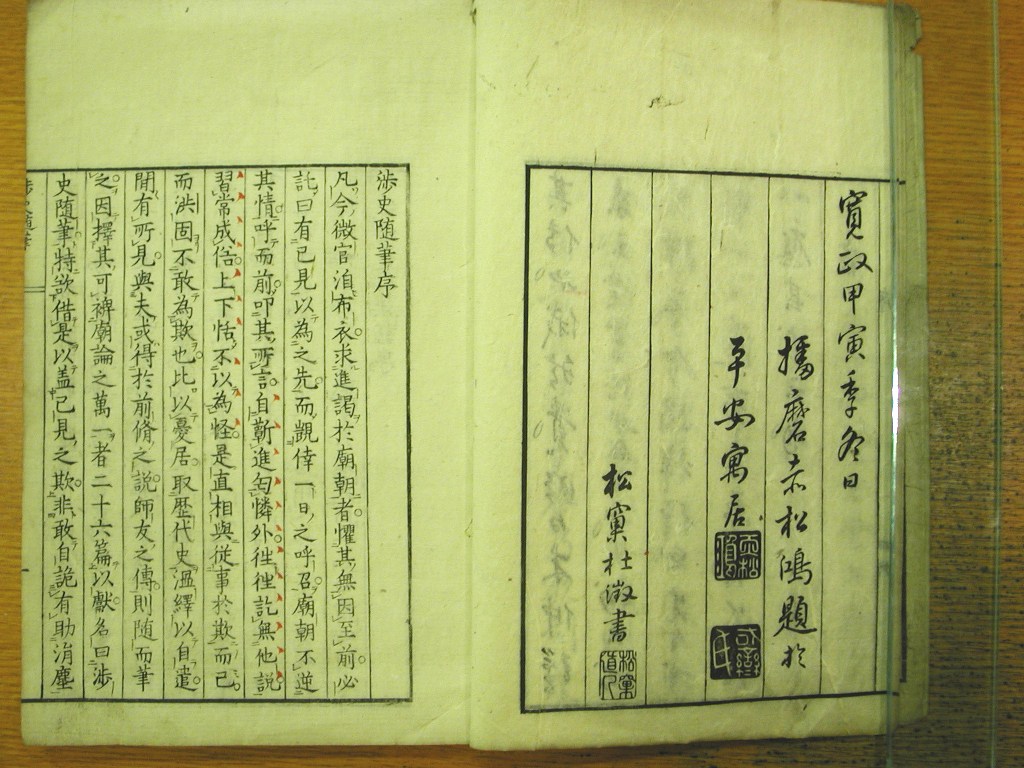 寛政甲寅季冬日
播磨赤松鴻題於
平安寓居
松窠杜澂書
渉史随筆序
凡今微官洎布衣求進謁於廟朝者懼其無因至前必
託曰有已見以為之先而覬倖一日之呼召廟朝不逆
其情呼而前叩其所言自勤進匃憐外徃徃訖無他説
習常成俗上下恬不以為怪是直相與従事於欺而已
而洪固不敢為欺也比以憂居取歴代史温繹以自遣
間有所見與夫或得於前脩之説師友之傳則随而筆
之因擇其可裨廟論之萬一者二十六篇以獻名曰渉
史随筆特欲借是以盖已見之欺非敢自詭有助涓塵